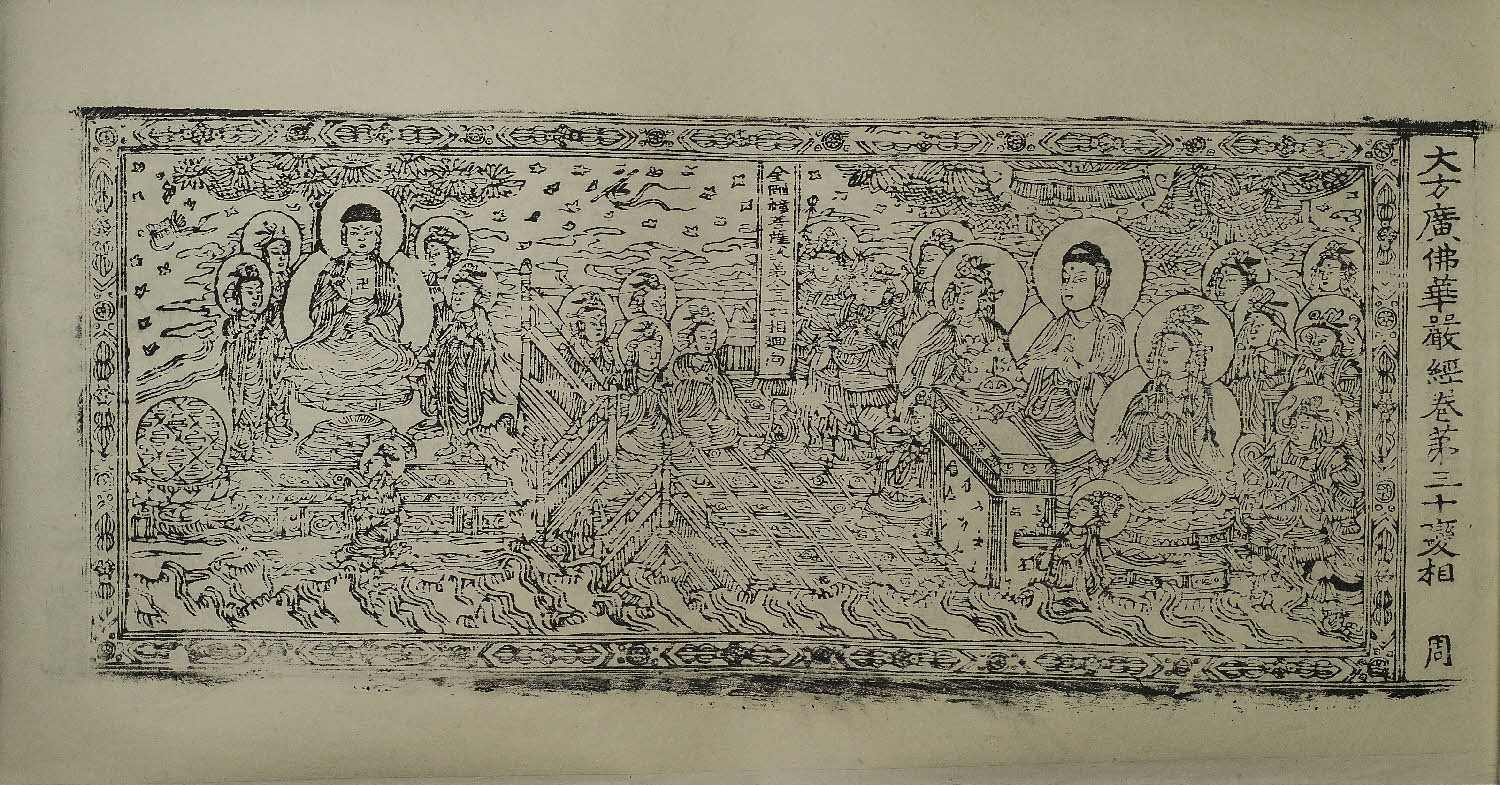 大方廣佛華嚴經卷苐三十變相 周
金剛幢菩薩相迴向